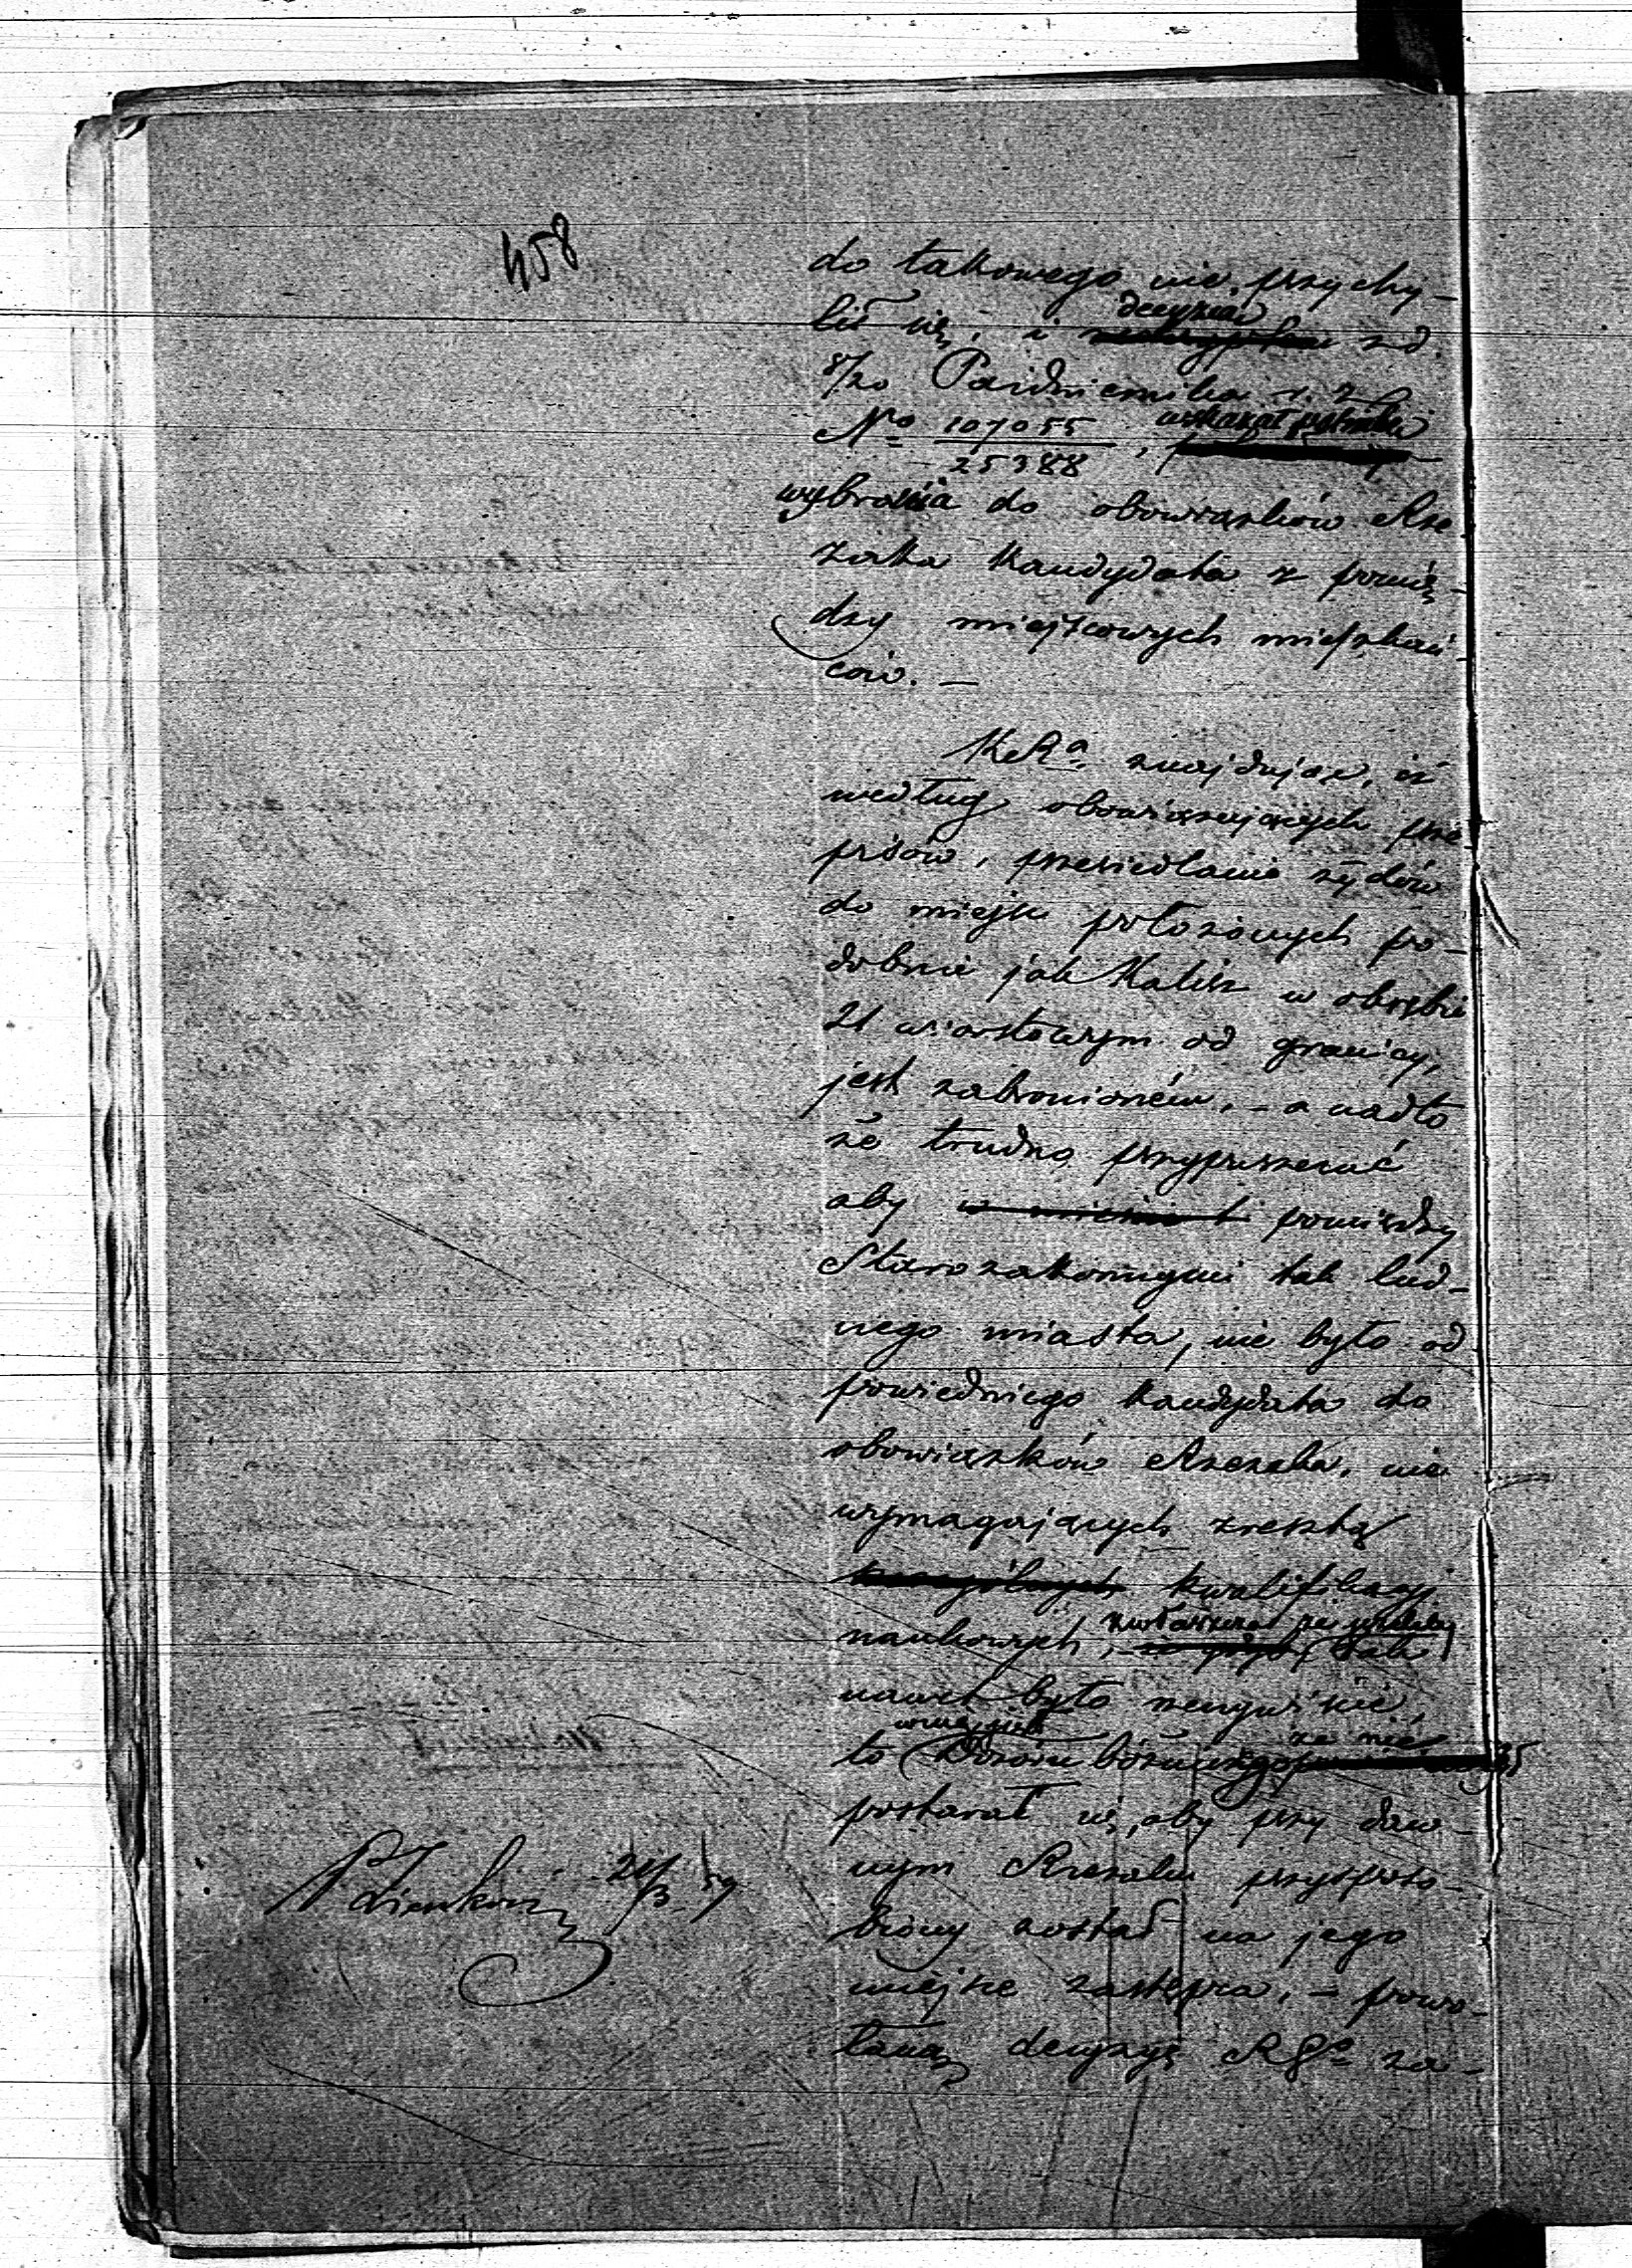 458
do takowego nie przychy-
lił się, i decyzią z d.
8/20 Października r. z.
No 107055/25388, wskazał potrzebę
wybrania do obowiązków Rze
zaka Kandydata z pomię-
dzy miejscowych mieszkań-
ców. —
KRa znajdując, iż
według obowiązujących prze
pisów, przesiedlanie żydów
do miejsc położonych po-
dobnie jak Kalisz w obrębie
21 wiorstowym od granicy,
jest zabronioném, – a nadto
że trudno przypuszczać
aby w mieście pomiędzy
Starozakonnymi tak lud-
nego miasta, nie było od
powiedniego Kandydata do
obowiązków Rzezaka, nie
wymagających zresztą
szczególnych kwalifikacyj
naukowych, zwłaszcza że
nawet było
to Dozoru bóżniczego że nie
postarał się, aby przy daw-
nym Rzezaku przysposo-
biony został na jego
miejsce zastępca, – powo-
łaną decyzyę RGo za-
24/3 59